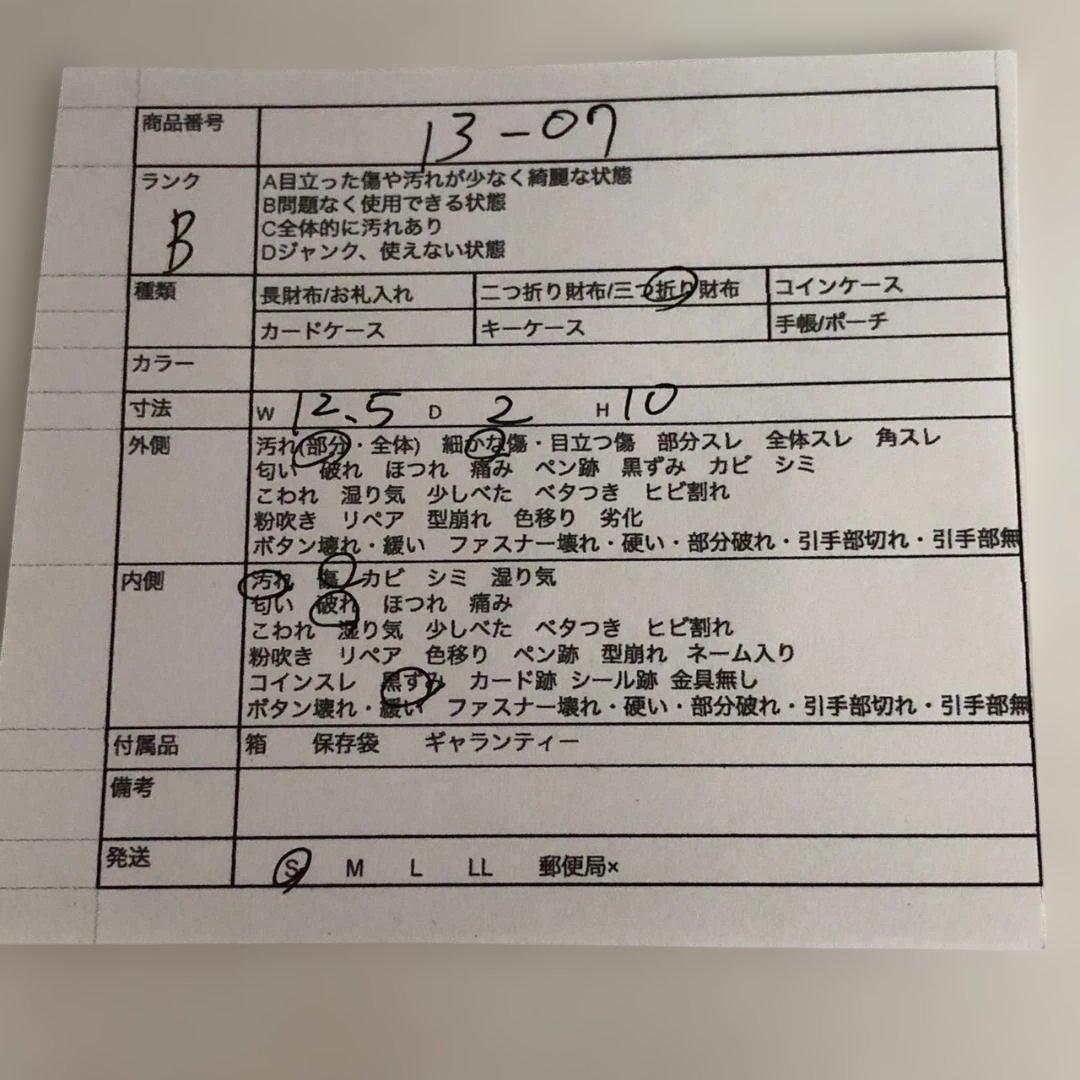 商品番号 13-07
ランク B A目立った傷や汚れが少なく綺麗な状態
B問題なく使用できる状態
C全体的に汚れあり
Dジャンク、使えない状態
種類 長財布/お札入れ 二つ折り財布/三つ折り財布 コインケース
カードケース キーケース 手帳/ポーチ
カラー
寸法 W 12.5 D 2 H 10
外側 汚れ(部分・全体) 細かな傷・目立つ傷 部分スレ 全体スレ 角スレ
匂い 破れ ほつれ 痛み ペン跡 黒ずみ カビ シミ
こわれ 湿り気 少しべた ベタつき ヒビ割れ
粉吹き リペア 型崩れ 色移り 劣化
ボタン壊れ・緩い ファスナー壊れ・硬い・部分破れ・引手部切れ・引手部無
内側 汚れ 傷 カビ シミ 湿り気
匂い 破れ ほつれ 痛み
こわれ 湿り気 少しべた ベタつき ヒビ割れ
粉吹き リペア 色移り ペン跡 型崩れ ネーム入り
コインスレ 黒ずみ カード跡 シール跡 金具無し
ボタン壊れ・緩い ファスナー壊れ・硬い・部分破れ・引手部切れ・引手部無
付属品 箱 保存袋 ギャランティー
備考
発送 S M L LL 郵便局×